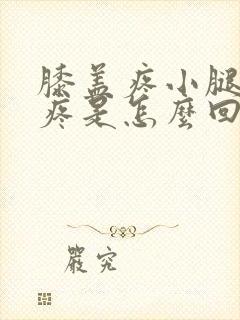 膝盖疼小腿
疼是怎麼回
嚴究